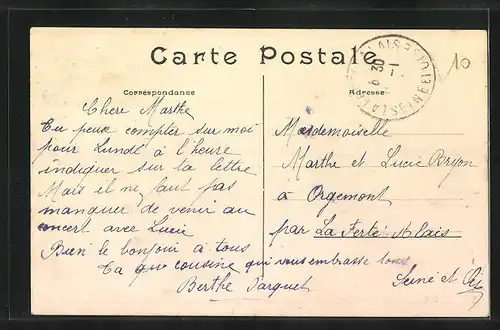 Carte Postale
10
Correspondance
Chere Marthe
Tu peux compter sur moi
pour Lundé à l'heure
indiquer sur ta lettre
Mais il ne faut pas
manquer de venir au
concert avec Lucie
Bien le bonjour à tous
Ta cousine qui vous embrasse tous
Berthe
Adresse
Mardemoiselle
Marthe et Lucie Bryon
à Orgemont
par La Ferté Alais
Seine et